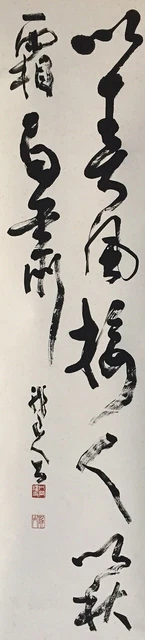 以春風接人以秋
霜自肅